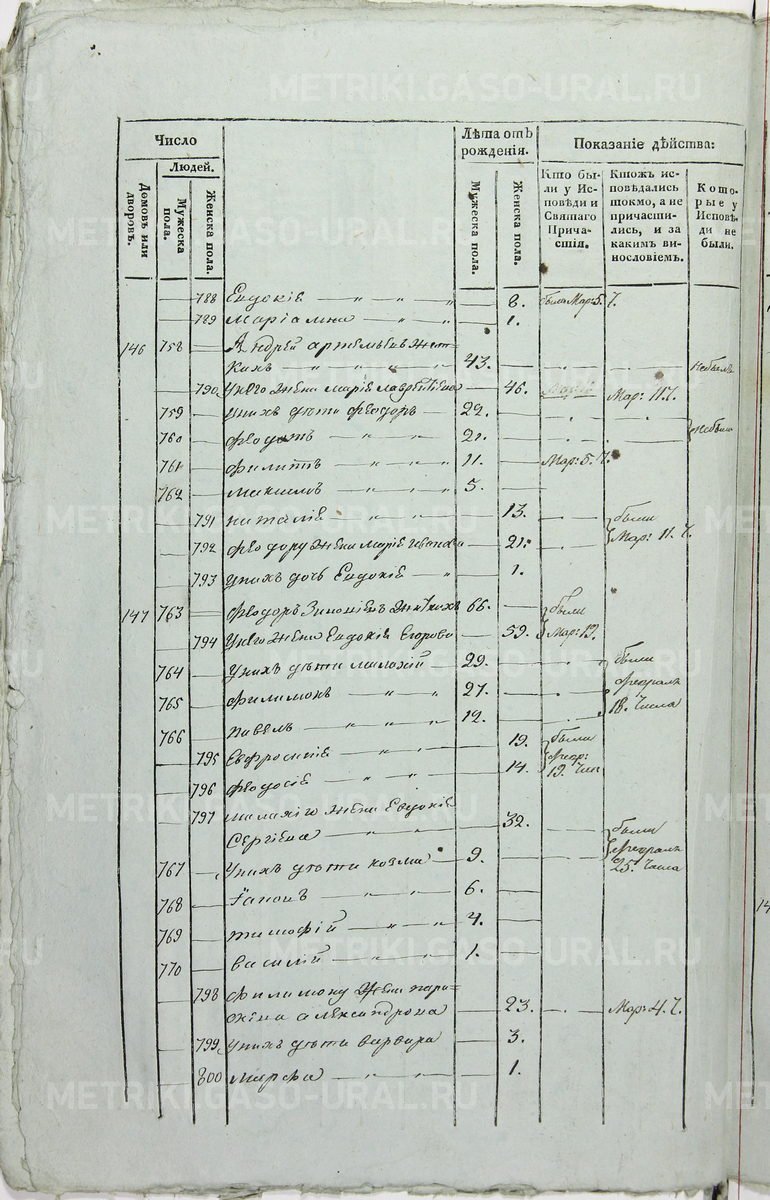 METRIKI.GASO-URAL.RU
Число
Лѣта отъ рожденія.
Показаніе дѣйства:
Людей.
Домовъ или дворовъ.
Мужеска пола.
Женска пола.
Мужеска пола.
Женска пола.
Кто были у Исповѣди и Святаго Причастія.
Ктожъ исповѣдались токмо, а не причастились, и за какимъ винословіемъ.
Которые у Исповѣди не были.
788 Евдокія — „ — „ — „ 8. были Мар: 5. Ч.
789 Маріамна — „ „ „ 1.
146 758 Андрей Артемьевъ
43. небылъ
790 Унего жена Марія Лаврентіева 46. Мар: 11. Ч.
759 Унихъ дѣти Феодоръ 22.
760 Федотъ — „ — „ 21. небыли
761 Филиппъ „ „ „ 11. Мар: 5. Ч.
762 Максимъ — „ „ „ 5.
791 Наталія „ „ „ 13. были
792 Феодору жена Марія Иванова 21. Мар: 11. Ч.
793 Унихъ дочь Евдокія — „ 1.
147 763 Феодоръ Зиновіевъ 66. были
794 Унего жена Евдокія Егорова 59. Мар: 19.
764 Унихъ дѣти Малахій 29. были
765 Филимонъ „ „ 27. Февраля
766 Павелъ — „ „ „ 12. 18. Числа
795 Евфросинія „ „ 19. были Февр:
796 Феодосія — „ „ 14. 19. Чис
797 Малахіго жена Евдокія
Сергіева — „ „ 32. были
767 Унихъ дѣти Козма 9. Февраля 25. Числа
768 Гапонъ — „ „ 6.
769 Тимофій — „ „ 4.
770 Василій — „ „ 1.
798 Филимону жена Пара-
сківа Александрова 23. Мар: 4. Ч.
799 Унихъ дѣти Варвара 3.
800 Марфа — „ „ 1.